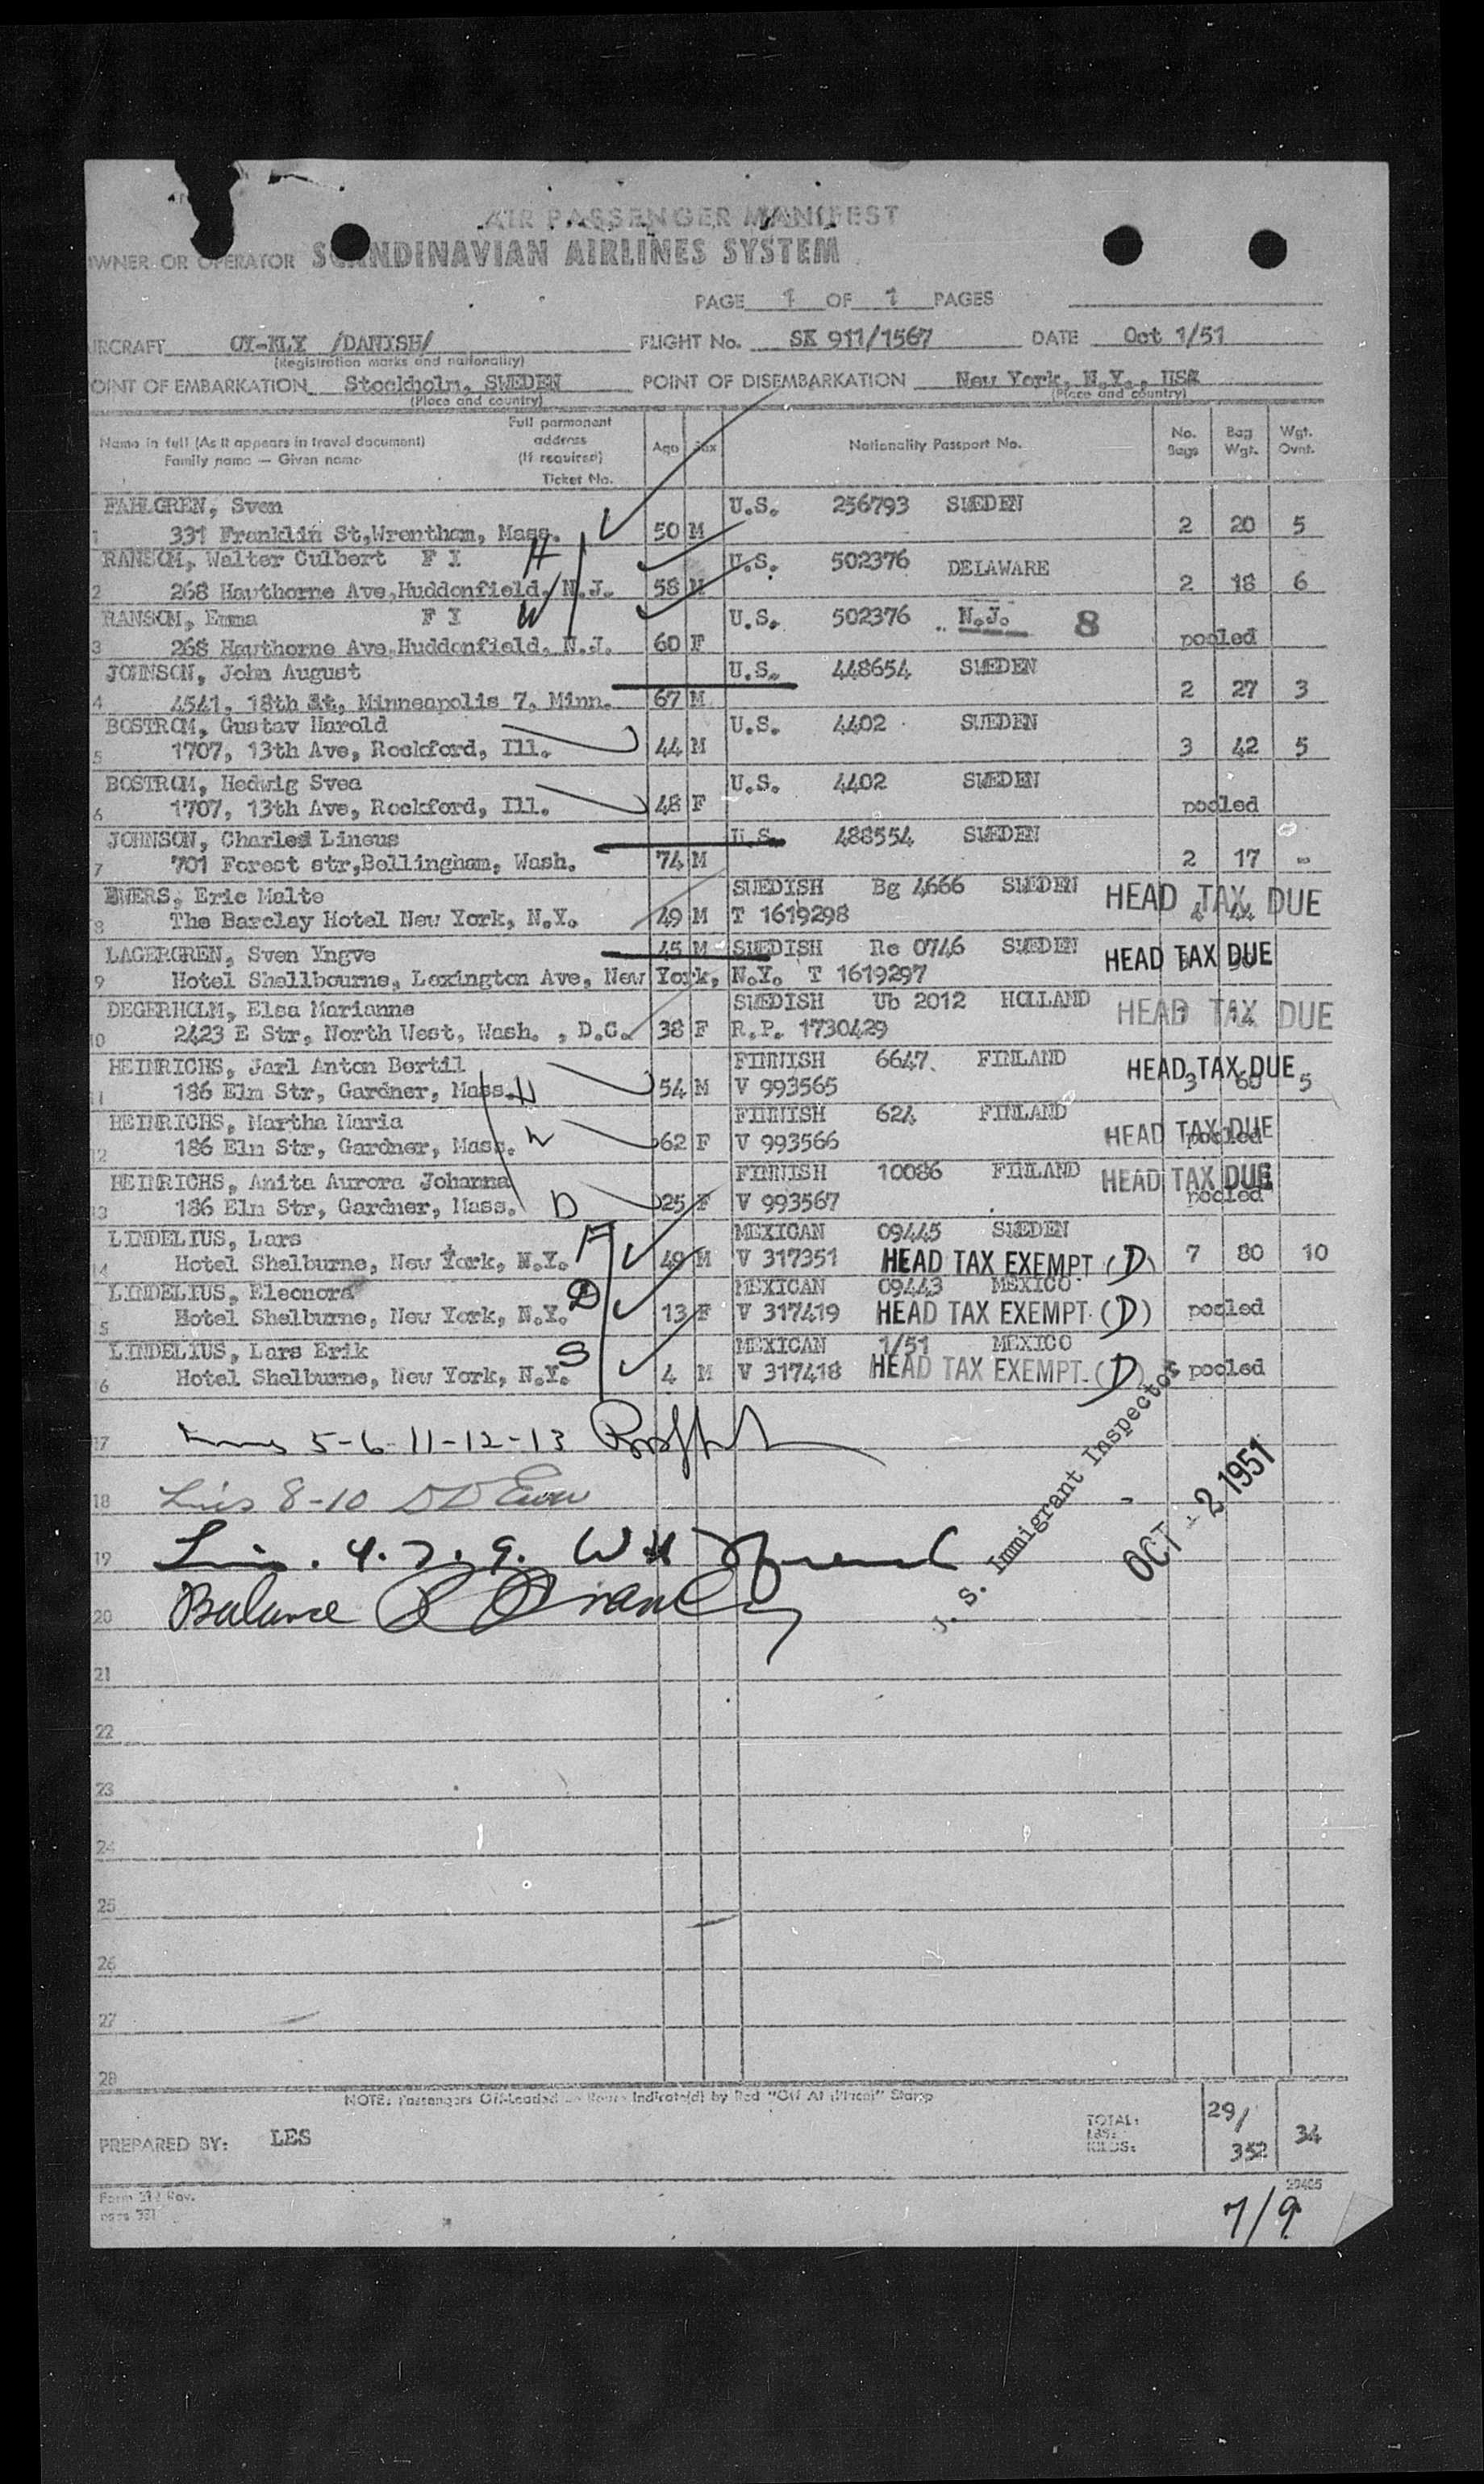 AIR PASSENGER MANIFEST
OWNER OR OPERATOR SCANDINAVIAN AIRLINES SYSTEM
PAGE 1 OF 1 PAGES
IRCRAFT OY-KLY /DANISH/ FLIGHT No. SK 911/1567 DATE Oct 1/51
(Registration marks and nationality)
OINT OF EMBARKATION Stockholm, SWEDEN POINT OF DISEMBARKATION New York, N.Y., USA
(Place and country) (Place and country)
Name in full (As it appears in travel document) Family name — Given name Full permanent address (If required) Ticket No. Age Sex Nationality Passport No. No. Bags Bag Wgt. Wgt. Ovnt.
FAHLGREN, Sven U.S. 256793 SWEDEN
1 331 Franklin St,Wrentham, Mass. 50 M 2 20 5
RANSOM, Walter Culbert F I H U.S. 502376 DELAWARE
2 268 Hawthorne Ave,Huddonfield, N.J. 58 M 2 18 6
RANSOM, Emma F I W U.S. 502376 N.J. 8
3 268 Hawthorne Ave,Huddonfield, N.J. 60 F pooled
JOHNSON, John August U.S. 448654 SWEDEN
4 4541, 18th St, Minneapolis 7, Minn. 67 M 2 27 3
BOSTROM, Gustav Harold U.S. 4402 SWEDEN
5 1707, 13th Ave, Rockford, Ill. 44 M 3 42 5
BOSTROM, Hedwig Svea U.S. 4402 SWEDEN
6 1707, 13th Ave, Rockford, Ill. 48 F pooled
JOHNSON, Charles Lineus U.S. 488554 SWEDEN
7 701 Forest str,Bellingham, Wash. 74 M 2 17 -
EWERS, Eric Malte SWEDISH Bg 4666 SWEDEN HEAD TAX DUE
8 The Barclay Hotel New York, N.Y. 49 M T 1619298
LAGERGREN, Sven Yngve 45 M SWEDISH Re 0746 SWEDEN HEAD TAX DUE
9 Hotel Shellbourne, Lexington Ave, New York, N.Y. T 1619297
DEGERHOLM, Elsa Marianne SWEDISH Ub 2012 HOLLAND HEAD TAX DUE
10 2423 E Str, North West, Wash. , D.C. 38 F R.P. 1730429
HEINRICHS, Jarl Anton Bertil FINNISH 6647. FINLAND HEAD TAX DUE
11 186 Elm Str, Gardner, Mass. H 54 M V 993565 3 60 5
HEINRICHS, Martha Maria FINNISH 624 FINLAND HEAD TAX DUE
12 186 Elm Str, Gardner, Mass. W 62 F V 993566 pooled
HEINRICHS, Anita Aurora Johanna FINNISH 10086 FINLAND HEAD TAX DUE
13 186 Elm Str, Gardner, Mass. D 25 F V 993567 pooled
LINDELIUS, Lars F MEXICAN 09445 SWEDEN
14 Hotel Shelburne, New York, N.Y. 49 M V 317351 HEAD TAX EXEMPT (D) 7 80 10
LINDELIUS, Eleonora D MEXICAN 09443 MEXICO
5 Hotel Shelburne, New York, N.Y. 13 F V 317419 HEAD TAX EXEMPT (D) pooled
LINDELIUS, Lars Erik S MEXICAN 1/51 MEXICO
6 Hotel Shelburne, New York, N.Y. 4 M V 317418 HEAD TAX EXEMPT (D) pooled
17 5-6-11-12-13
18 Lines 8-10
19 4. 7. 9.
20 Balance
U. S. Immigrant Inspector
OCT - 2 1951
21
22
23
24
25
26
27
28
NOTE: Passengers Off-Loaded En Route Indicate(d) by Red "Off At (Place)" Stamp
PREPARED BY: LES TOTAL: LBS: KILOS: 29/ 352 34
Form 314 Rev.
29405
7/9